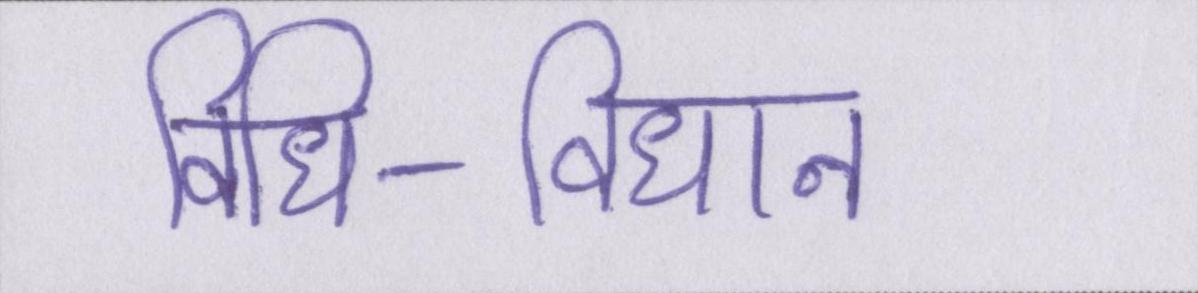 विधि-विधान